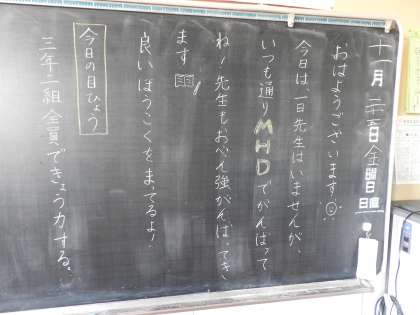 十一月二十五日金曜日 日直
おはようございます
今日は、一日先生はいませんが、
いつも通りMHDでがんばって
ね！先生もお勉強がんばってき
ます
良いほうこくをまってるよ！
今日の目ひょう
三年二組全員できょう力する。